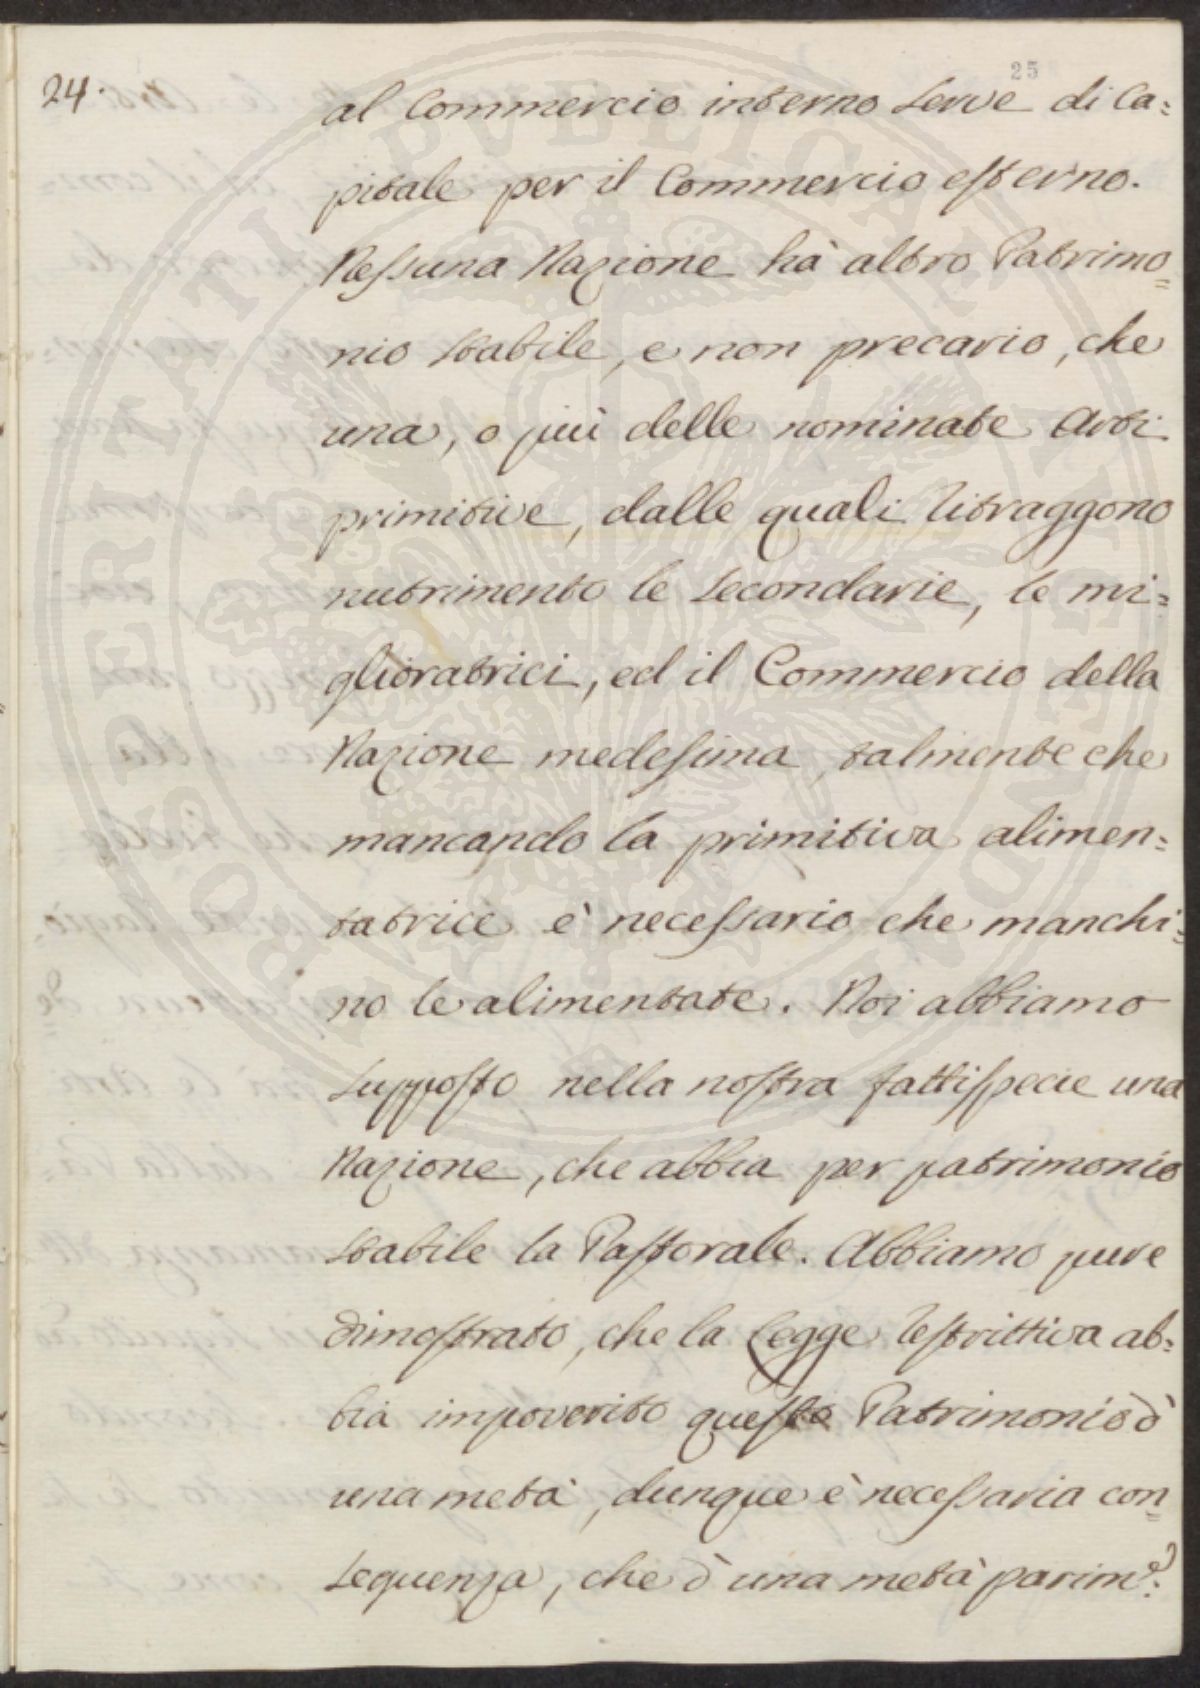 24.
25
al Commercio interno serve di Ca=
pitale per il Commercio esterno.
Nessuna Nazione hà altro Patrimo=
nio stabile, e non precario, che
una, o più delle nominate Arti
primitive, dalle quali ritraggono
nutrimento le secondarie, le mi=
glioratrici, ed il Commercio della
Nazione medesima, talmente che
mancando la primitiva alimen=
tatrice è necessario che manchi=
no le alimentate. Noi abbiamo
supposto nella nostra fattispecie una
Nazione, che abbia per patrimonio
stabile la Pastorale. Abbiamo pure
dimostrato, che la Legge restrittiva ab=
bia impoverito questo Patrimonio d'
una metà, dunque è necessaria con=
sequenza, che d' una metà parim.e
PROSPERITATI PVBLICAE AVGENDAE